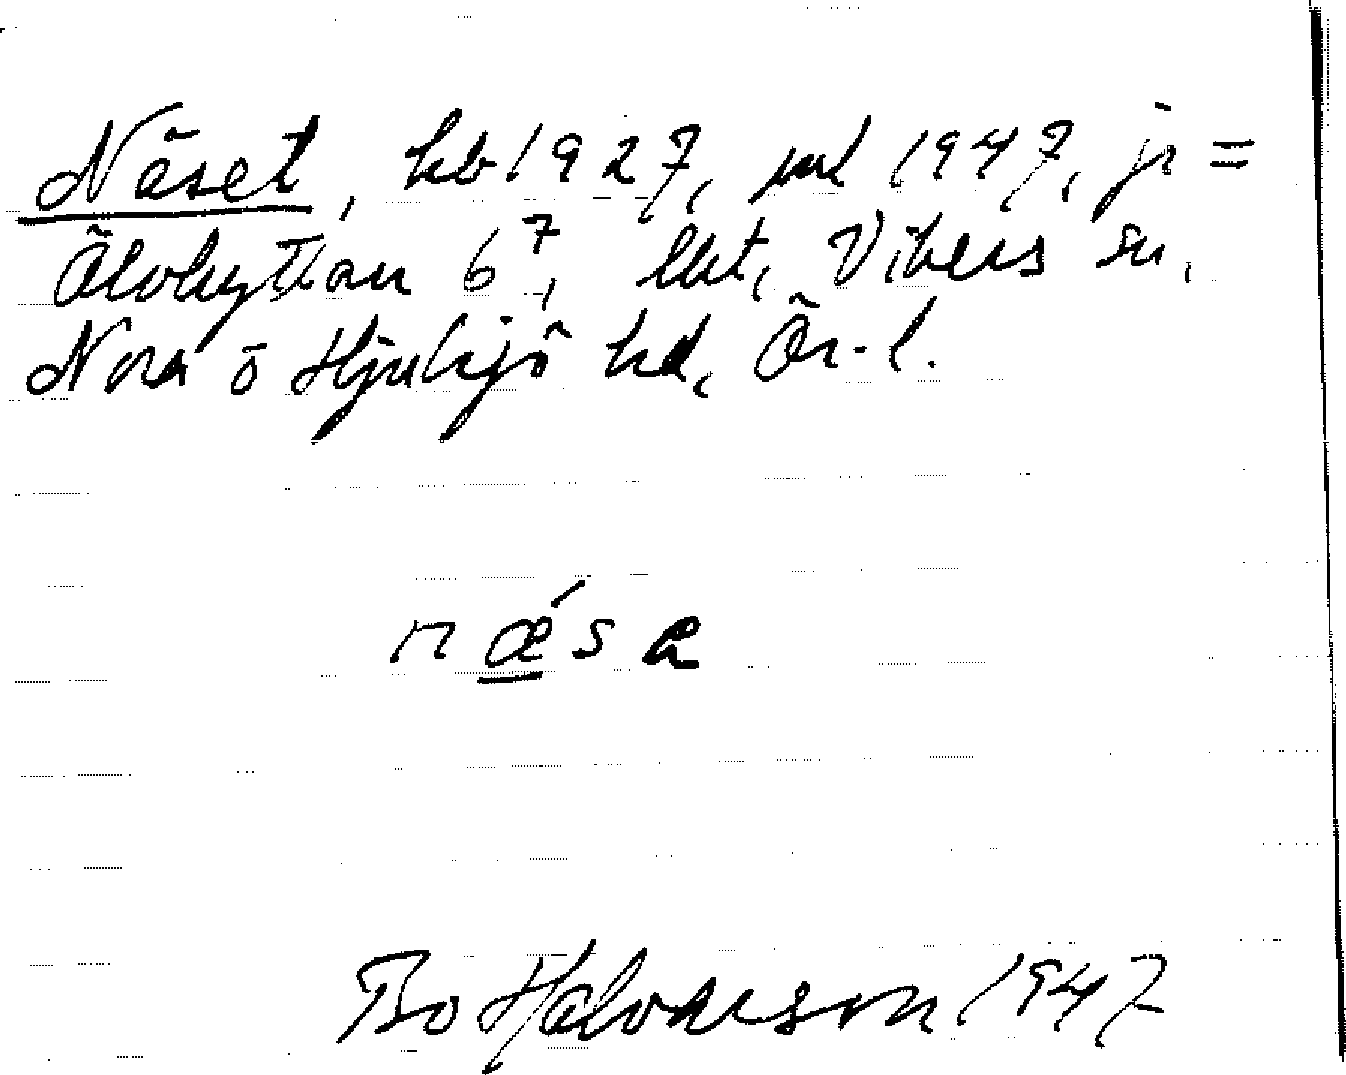 Näset, hb 1927, ml 1947, jr =
Älvhyttan 6⁷, lht, Vikers sn,
Nora o Hjulsjö hd, Ör. l.
nǽsə
Bo Halvarson 1947